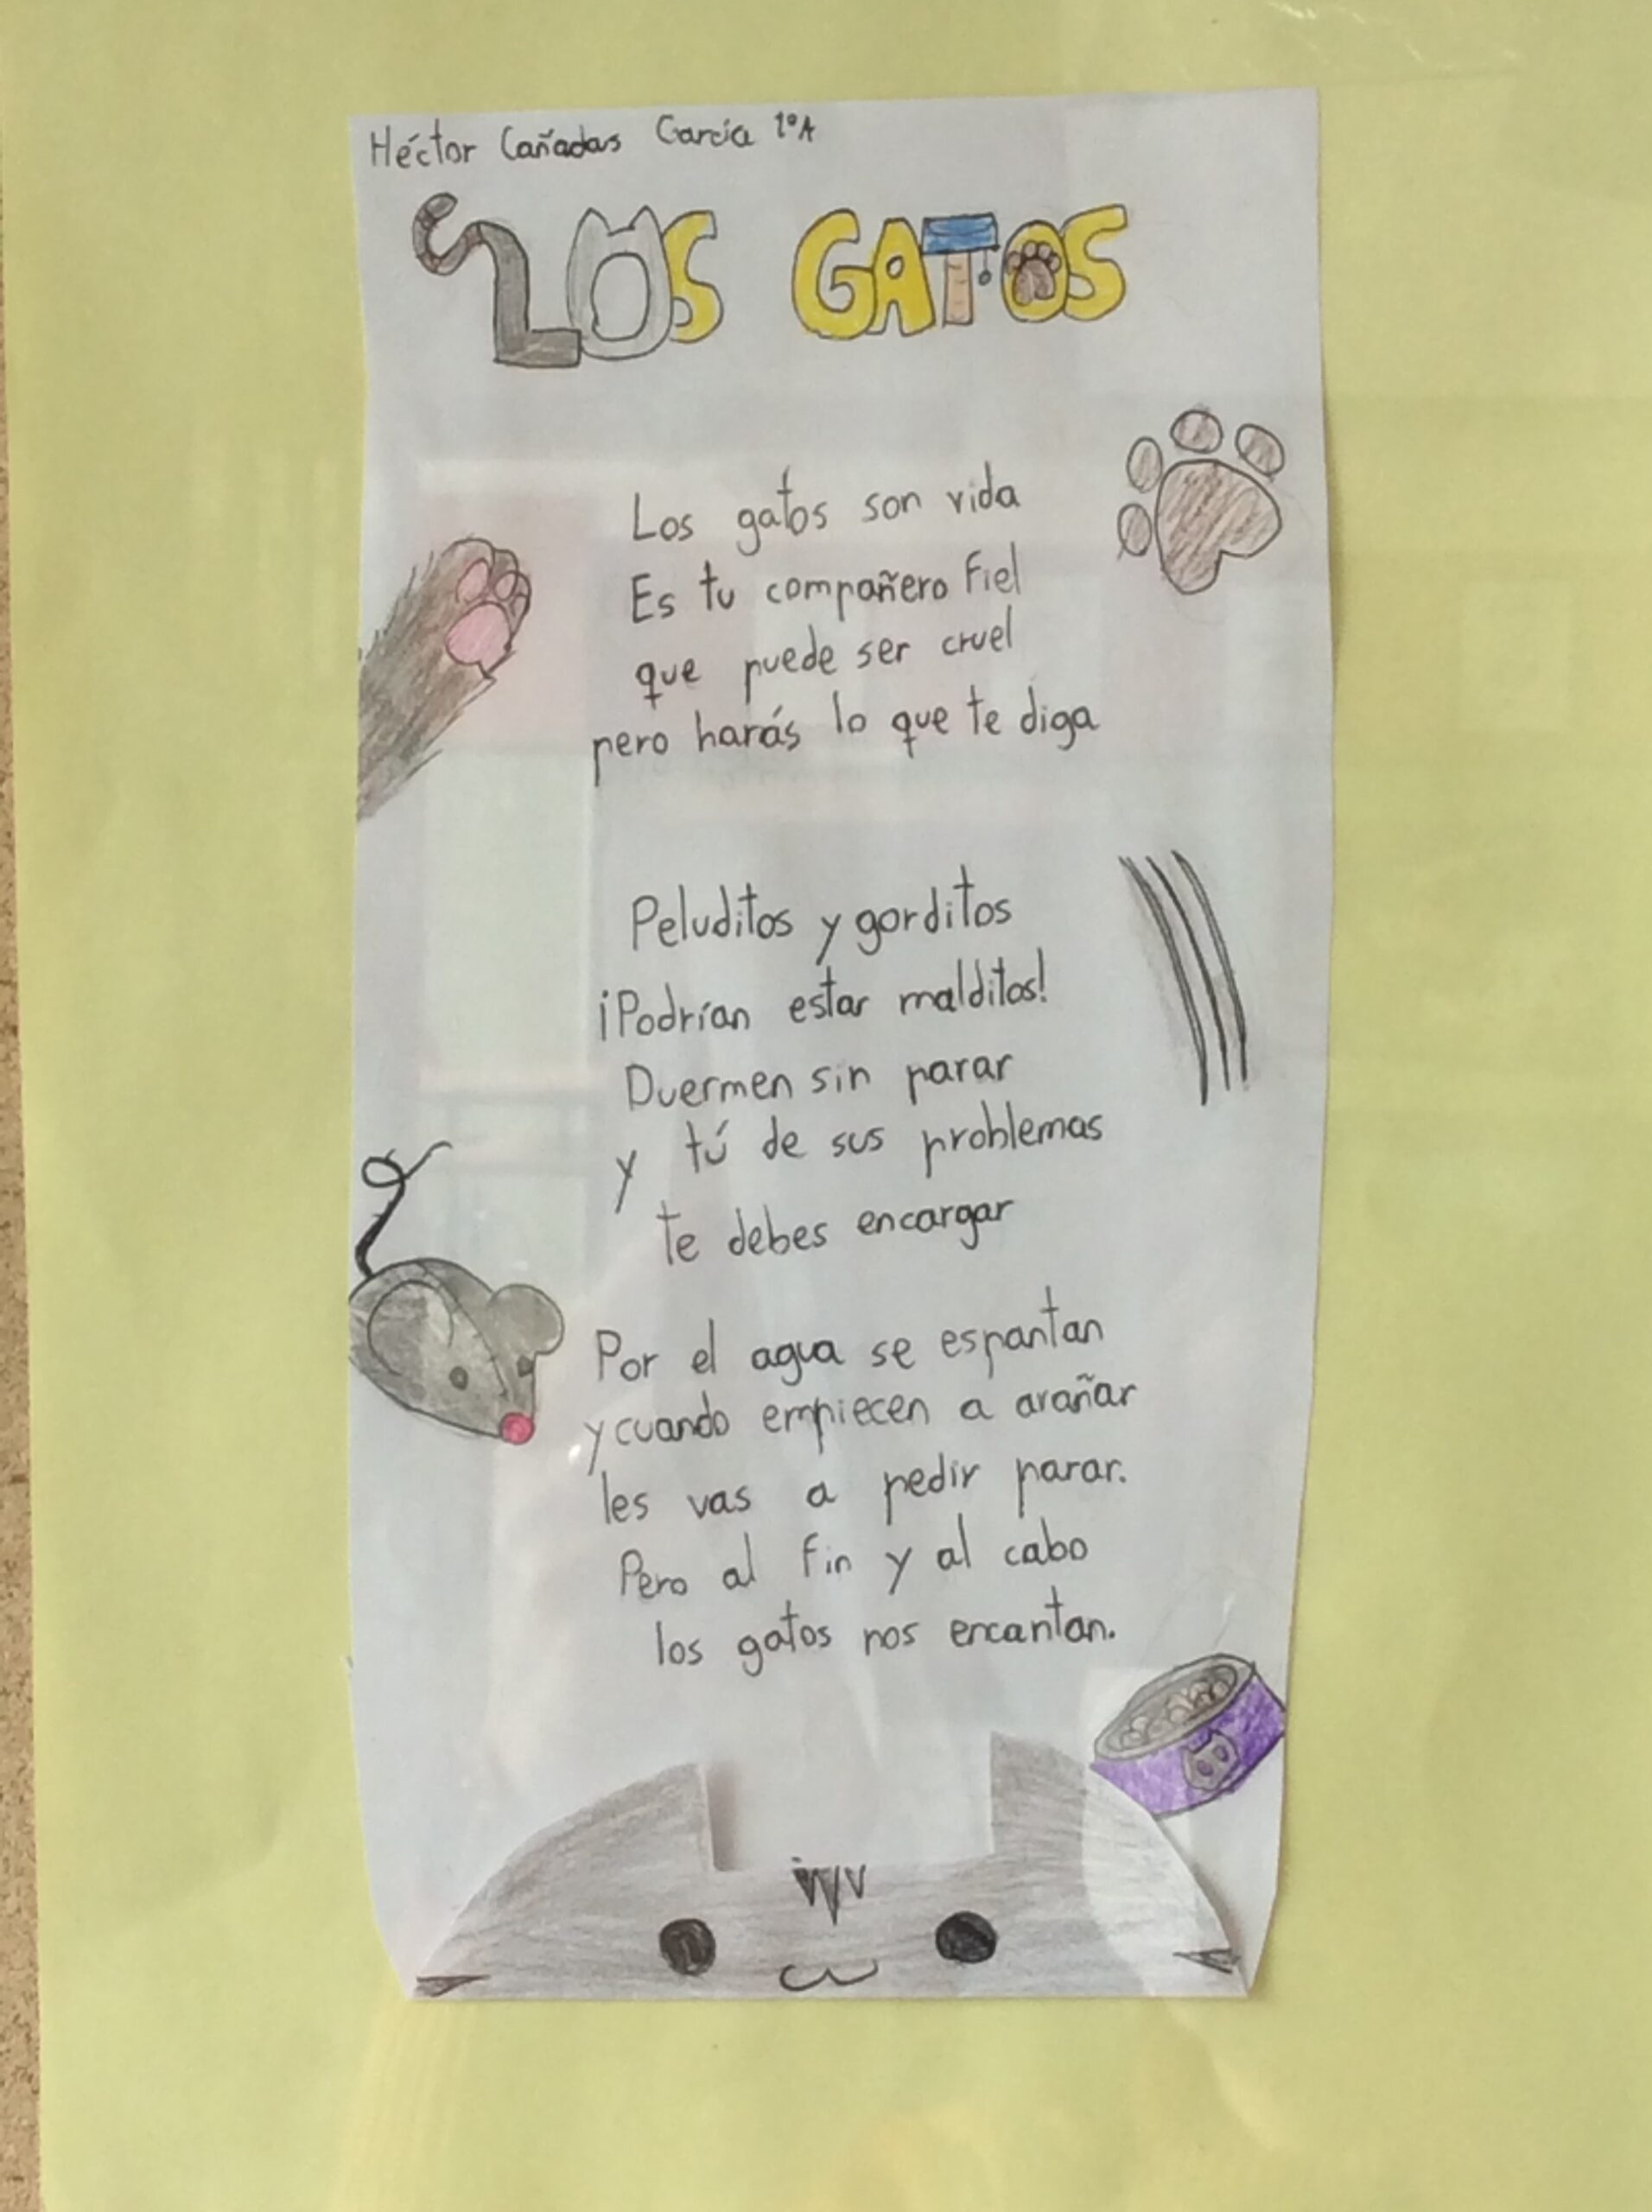 Héctor Cañadas García 1ºA
LOS GATOS
Los gatos son vida
Es tu compañero fiel
que puede ser cruel
pero harás lo que te diga
Peluditos y gorditos
¡Podrían estar malditos!
Duermen sin parar
y tú de sus problemas
te debes encargar
Por el agua se espantan
y cuando empiecen a arañar
les vas a pedir parar.
Pero al fin y al cabo
los gatos nos encantan.